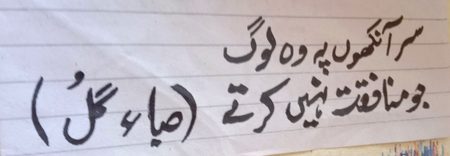 سر آنکھوں پہ وہ لوگ
جو منافقت نہیں کرتے (صباء گُل)